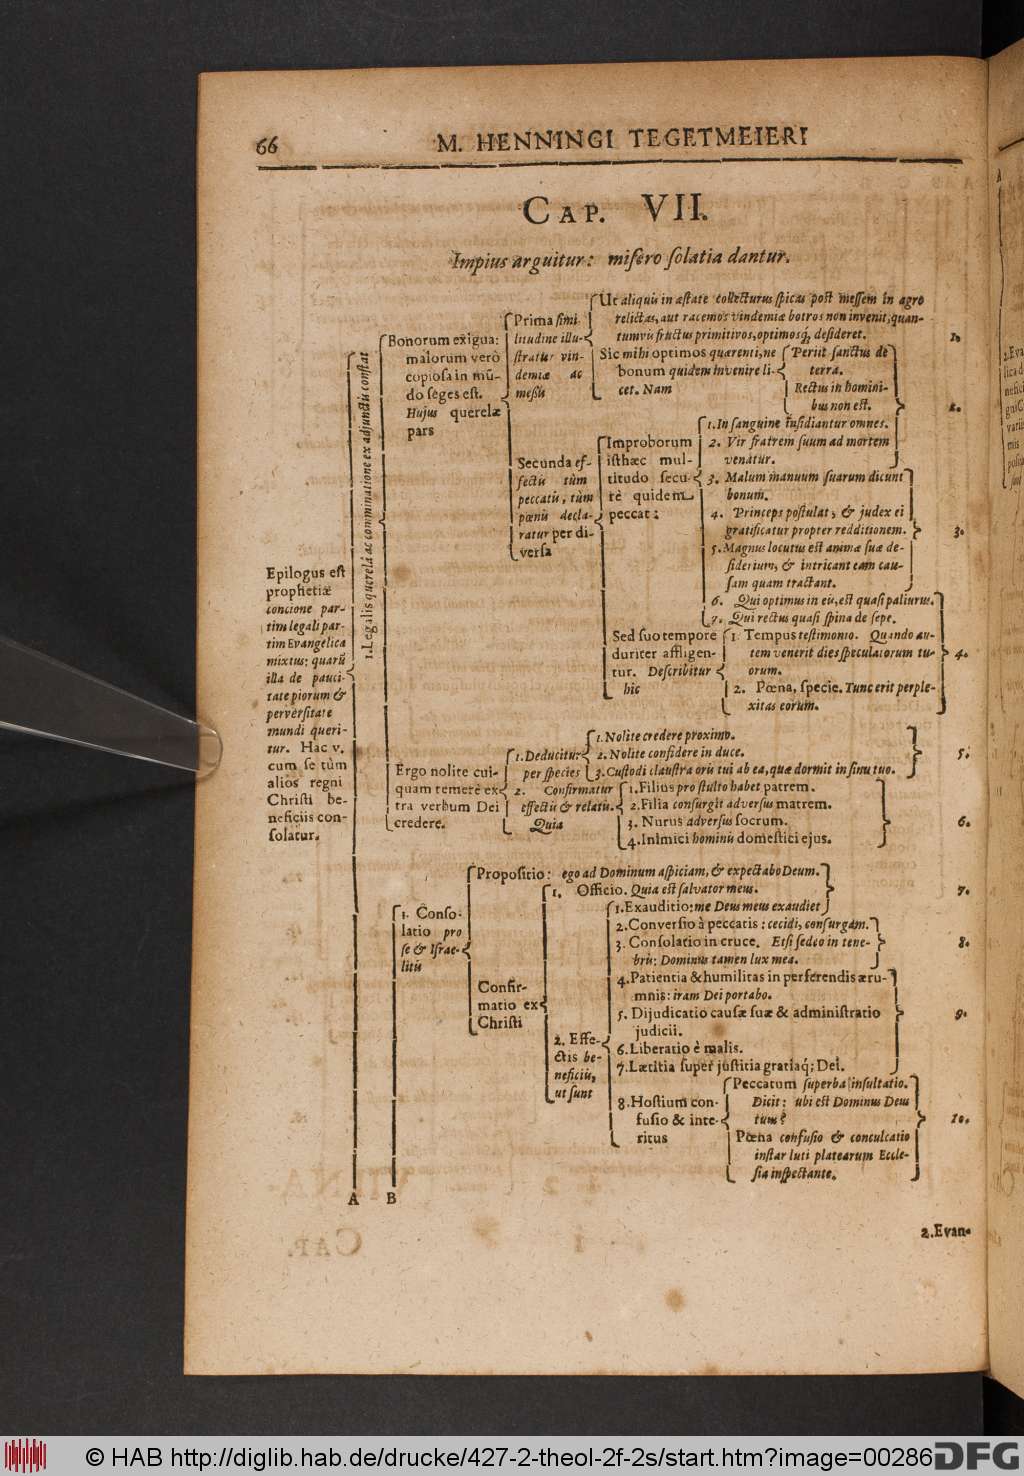 66
M. HENNINGI TEGETMEIERI
CAP. VII.
Impius arguitur: miſero ſolatia dantur.
Epilogus eſt
prophetiæ
concione par-
tim legali par-
tim Evangelica
mixtus: quarũ
illa de pauci-
tate piorum &
perverſitate
mundi queri-
tur. Hac v.
cum ſe tùm
alios regni
Chriſti be-
neficiis con-
ſolatur.
1. Legalis querelâ ac comminatione ex adjunctis conſtat
Bonorum exigua:
malorum verò
copioſa in mũ-
do ſeges eſt.
Hujus querelæ
pars
Prima ſimi-
litudine illu-
ſtratur vin-
demiæ ac
meßis
Ut aliquis in æſtate collecturus ſpicas poſt meſſem in agro
relictas, aut racemos vindemiæ botros non invenit, quan-
tumvis fructus primitivos, optimosq́, deſideret.
1.
Sic mihi optimos quærenti, ne
bonum quidem invenire li-
cet. Nam
Periit ſanctus de
terra.
Rectus in homini-
bus non eſt.
2.
Secunda ef-
fectis tùm
peccatis, tùm
pœnis decla-
ratur per di-
verſa
Improborum
iſthæc mul-
titudo ſecu-
rè quidem
peccat:
1. In ſanguine inſidiantur omnes.
2. Vir fratrem ſuum ad mortem
venatur.
3. Malum manuum ſuarum dicunt
bonum.
4. Princeps poſtulat, & judex ei
gratificatur propter redditionem.
3.
5. Magnus locutus eſt animæ ſuæ de-
ſiderium, & intricant eam cau-
ſam quam tractant.
6. Qui optimus in eis, eſt quaſi paliurus.
7. Qui rectus quaſi ſpina de ſepe.
Sed ſuo tempore
duriter affligen-
tur. Deſcribitur
hic
1. Tempus teſtimonio. Quando au-
tem venerit dies ſpeculatorum tu-
orum.
4.
2. Pœna, ſpecie. Tunc erit perple-
xitas eorum.
Ergo nolite cui-
quam temerè ex-
tra verbum Dei
credere.
1. Deducitur
per ſpecies
1. Nolite credere proximo.
2. Nolite confidere in duce.
3. Cuſtodi clauſtra oris tui ab ea, quæ dormit in ſinu tuo.
5.
2. Confirmatur
effectis & relatis.
Quia
1. Filius pro ſtulto habet patrem.
2. Filia conſurgit adverſus matrem.
3. Nurus adverſus ſocrum.
4. Inimici hominis domeſtici ejus.
6.
1. Conſo-
latio pro
ſe & Iſrae-
litis
Propoſitio: ego ad Dominum aſpiciam, & expectabo Deum.
Confir-
matio ex
Chriſti
1. Officio. Quia eſt ſalvator meus.
7.
2. Effe-
ctis be-
neficiis,
ut ſunt
1. Exauditio: me Deus meus exaudiet
2. Converſio à peccatis: cecidi, conſurgam.
3. Conſolatio in cruce. Etſi ſedeo in tene-
bris: Dominus tamen lux mea.
8.
4. Patientia & humilitas in perferendis æru-
mnis: iram Dei portabo.
5. Dijudicatio cauſæ ſuæ & adminiſtratio
judicii.
9.
6. Liberatio è malis.
7. Lætitia ſuper juſtitia gratiaq́; Dei.
8. Hoſtium con-
fuſio & inte-
ritus
Peccatum ſuperba inſultatio.
Dicit: ubi eſt Dominus Deus
tuus?
Pœna confuſio & conculcatio
inſtar luti platearum Eccle-
ſia inſpectante.
10.
A B
2. Evan-
© HAB http://diglib.hab.de/drucke/427-2-theol-2f-2s/start.htm?image=00286
DFG